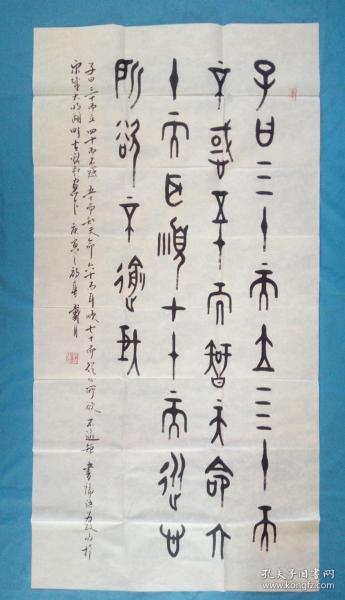 子曰三十而立四十而
不惑五十而智天命六
十而耳順七十而從心
所欲不逾矩
子曰三十而立四十而不惑五十而知天命六十而耳順七十而從心所欲不逾矩 書論語為政句於
泉城大明湖畔古 庚寅之初春
孔夫子旧书网
www.kongfz.com